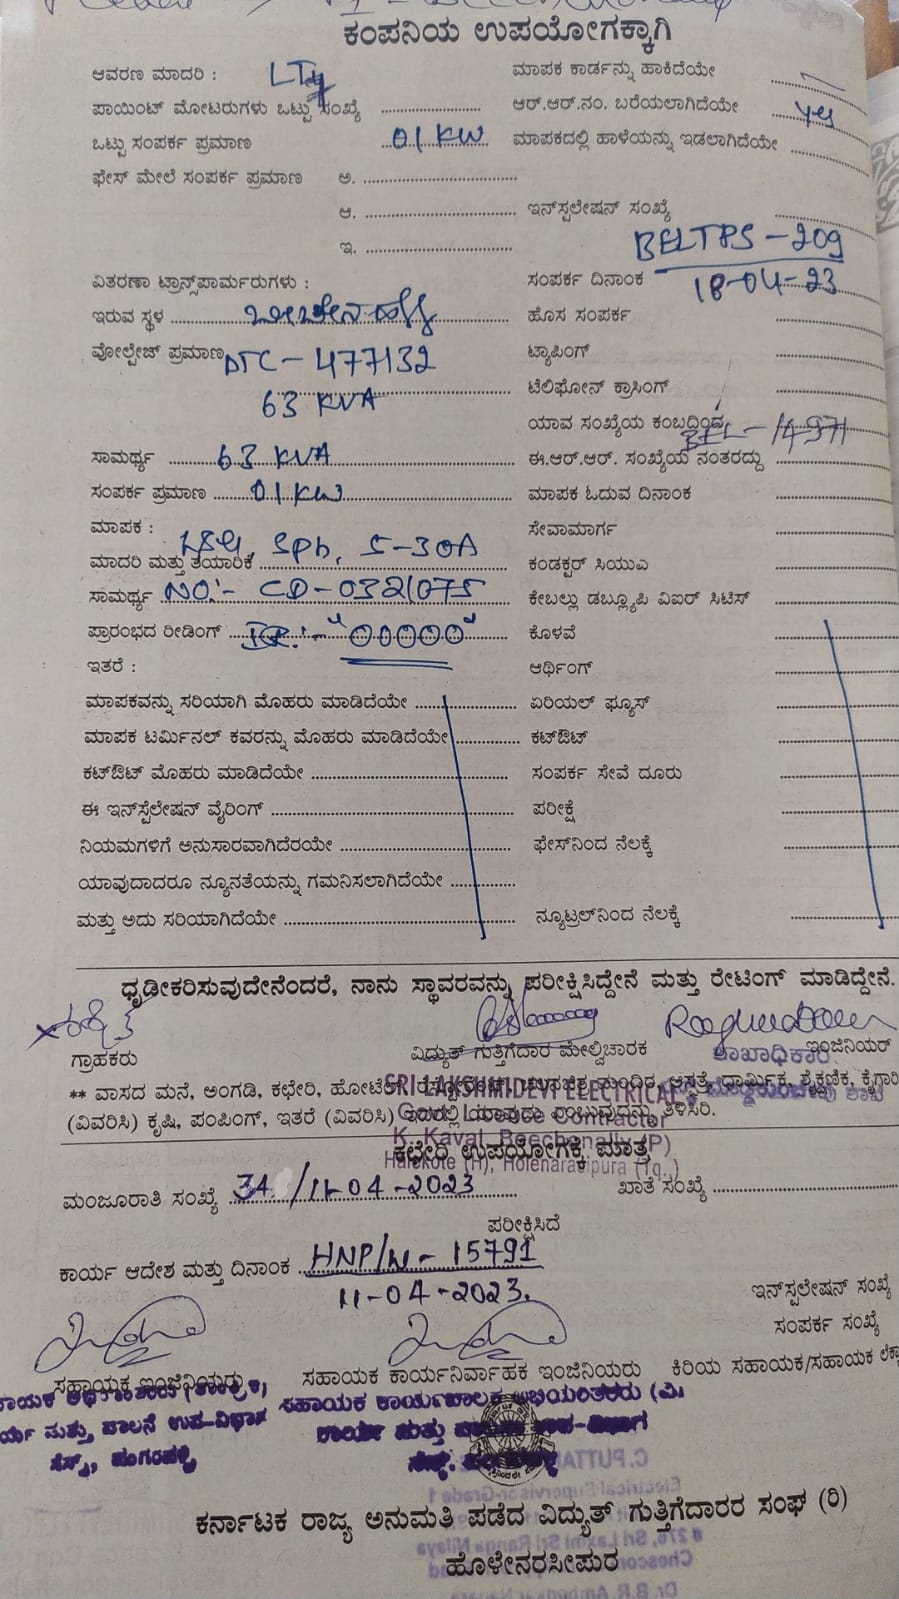 ಕಂಪನಿಯ ಉಪಯೋಗಕ್ಕಾಗಿ
ಆವರಣ ಮಾದರಿ : LT4
ಮಾಪಕ ಕಾರ್ಡನ್ನು ಹಾಕಿದೆಯೇ
ಪಾಯಿಂಟ್ ಮೋಟರುಗಳು ಒಟ್ಟು ಸಂಖ್ಯೆ
ಆರ್.ಆರ್.ನಂ. ಬರೆಯಲಾಗಿದೆಯೇ
ಒಟ್ಟು ಸಂಪರ್ಕ ಪ್ರಮಾಣ 01 KW
ಮಾಪಕದಲ್ಲಿ ಹಾಳೆಯನ್ನು ಇಡಲಾಗಿದೆಯೇ
ಫೇಸ್ ಮೇಲೆ ಸಂಪರ್ಕ ಪ್ರಮಾಣ ಅ.
ಆ.
ಇನ್‌ಸ್ಪಲೇಷನ್ ಸಂಖ್ಯೆ
ಇ.
BELTPS - 209
ವಿತರಣಾ ಟ್ರಾನ್ಸ್‌ಪಾರ್ಮರುಗಳು :
ಸಂಪರ್ಕ ದಿನಾಂಕ 18-04-23
ಇರುವ ಸ್ಥಳ ಬೀಚೇನಹಳ್ಳಿ
ಹೊಸ ಸಂಪರ್ಕ
ವೋಲ್ಟೇಜ್ ಪ್ರಮಾಣ DTC - 477132
ಟ್ಯಾಪಿಂಗ್
63 KVA
ಟೆಲಿಫೋನ್ ಕ್ರಾಸಿಂಗ್
ಯಾವ ಸಂಖ್ಯೆಯ ಕಂಬದಿಂದ
ಸಾಮರ್ಥ್ಯ 63 KVA
ಈ.ಆರ್.ಆರ್. ಸಂಖ್ಯೆಯ ನಂತರದ್ದು
ಸಂಪರ್ಕ ಪ್ರಮಾಣ 01 KW
ಮಾಪಕ ಓದುವ ದಿನಾಂಕ
ಮಾಪಕ :
ಸೇವಾಮಾರ್ಗ
ಮಾದರಿ ಮತ್ತು ತಯಾರಿಕೆ L&G, Sph, 5-30A
ಕಂಡಕ್ಟರ್ ಸಿಯುಎ
ಸಾಮರ್ಥ್ಯ NO:- CD-0321075
ಕೇಬಲ್ಲು ಡಬ್ಲ್ಯೂಪಿ ವಿಐರ್ ಸಿಟಿಸ್
ಪ್ರಾರಂಭದ ರೀಡಿಂಗ್ IR:- "00000"
ಕೊಳವೆ
ಇತರೆ :
ಆರ್ಥಿಂಗ್
ಮಾಪಕವನ್ನು ಸರಿಯಾಗಿ ಮೊಹರು ಮಾಡಿದೆಯೇ
ಏರಿಯಲ್ ಫ್ಯೂಸ್
ಮಾಪಕ ಟರ್ಮಿನಲ್ ಕವರನ್ನು ಮೊಹರು ಮಾಡಿದೆಯೇ
ಕಟ್‌ಔಟ್
ಕಟ್‌ಔಟ್ ಮೊಹರು ಮಾಡಿದೆಯೇ
ಸಂಪರ್ಕ ಸೇವೆ ದೂರು
ಈ ಇನ್‌ಸ್ಟಲೇಷನ್ ವೈರಿಂಗ್
ಪರೀಕ್ಷೆ
ನಿಯಮಗಳಿಗೆ ಅನುಸಾರವಾಗಿದೆರಯೇ
ಫೇಸ್‌ನಿಂದ ನೆಲಕ್ಕೆ
ಯಾವುದಾದರೂ ನ್ಯೂನತೆಯನ್ನು ಗಮನಿಸಲಾಗಿದೆಯೇ
ಮತ್ತು ಅದು ಸರಿಯಾಗಿದೆಯೇ
ನ್ಯೂಟ್ರಲ್‌ನಿಂದ ನೆಲಕ್ಕೆ
ಧೃಢೀಕರಿಸುವುದೇನೆಂದರೆ, ನಾನು ಸ್ಥಾವರವನ್ನು ಪರೀಕ್ಷಿಸಿದ್ದೇನೆ ಮತ್ತು ರೇಟಿಂಗ್ ಮಾಡಿದ್ದೇನೆ.
ಗ್ರಾಹಕರು
ವಿದ್ಯುತ್ ಗುತ್ತಿಗೆದಾರ ಮೇಲ್ವಿಚಾರಕ
ಇಂಜಿನಿಯರ್
ಶಾಖಾಧಿಕಾರಿ
** ವಾಸದ ಮನೆ, ಅಂಗಡಿ, ಕಛೇರಿ, ಹೋಟೆಲ್ ಮಂದಿರ, ಆಸ್ಪತ್ರೆ, ಧಾರ್ಮಿಕ, ಶೈಕ್ಷಣಿಕ, ಕೈಗಾರಿ
SRI LAKSHMIDEVI ELECTRICAL
(ವಿವರಿಸಿ) ಕೃಷಿ, ಪಂಪಿಂಗ್, ಇತರೆ (ವಿವರಿಸಿ) ಇದರಲ್ಲಿ ಯಾವುದು ಎಂಬುವುದನ್ನು ತಿಳಿಸಿರಿ.
Contractor
K. Kaval, Beechenally (P)
ಕಛೇರಿ ಉಪಯೋಗಕ್ಕೆ ಮಾತ್ರ
Halekote (H), Holenarasipura (Tq.,)
ಮಂಜೂರಾತಿ ಸಂಖ್ಯೆ 34 / 11-04-2023
ಖಾತೆ ಸಂಖ್ಯೆ
ಪರೀಕ್ಷಿಸಿದೆ
ಕಾರ್ಯ ಆದೇಶ ಮತ್ತು ದಿನಾಂಕ HNP/W - 15791
11-04-2023.
ಇನ್‌ಸ್ಪಲೇಷನ್ ಸಂಖ್ಯೆ
ಸಂಪರ್ಕ ಸಂಖ್ಯೆ
ಸಹಾಯಕ ಇಂಜಿನಿಯರು
ಸಹಾಯಕ ಕಾರ್ಯನಿರ್ವಾಹಕ ಇಂಜಿನಿಯರು
ಕಿರಿಯ ಸಹಾಯಕ/ಸಹಾಯಕ
ಸಹಾಯಕ ಕಾರ್ಯಪಾಲಕ ಅಭಿಯಂತರರು (ವಿ.
ಕರ್ನಾಟಕ ರಾಜ್ಯ ಅನುಮತಿ ಪಡೆದ ವಿದ್ಯುತ್ ಗುತ್ತಿಗೆದಾರರ ಸಂಘ (ರಿ)
ಹೊಳೇನರಸೀಪುರ